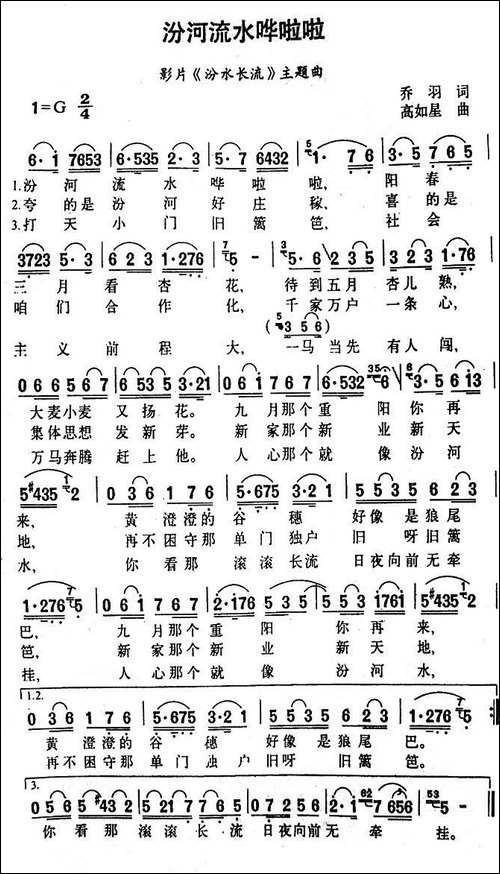 汾河流水哗啦啦
影片《汾水长流》主题曲
1=G 2/4
乔羽 词
高如星 曲
6·1 7653 | 6·535 2·3 | 5·7 6432 | 1· 7 6 | 3·5 7 6 5 |
1.汾河流水哗啦啦, 阳春
2.夸的是汾河好庄稼, 喜的是
3.打天小门旧篱笆, 社会
3723 5·3 | 6 2 3 1·276 | 5 - | 5·6 1 2 3 5 | 2 3 2 3 1·76 |
三月看杏花, 待到五月杏儿熟,
咱们合作化, 千家万户一条心,
(3 5 6)
主义前程大, 一马当先有人闯,
0 6 6 5 6 7 | 6 5 3 5 3·21 | 0 6 1 7 6 7 | 6·532 | 3·5 6 1 3 |
大麦小麦又扬花。九月那个重阳你再
集体思想发新芽。新家那个新业新天
万马奔腾赶上他。人心那个就像汾河
5#435 2 | 0 3 6 1 7 6 | 5·675 3·2 1 | 5 5 3 5 6 2 3 |
来, 黄澄澄的谷穗好像是狼尾
地, 再不困守那单门独户旧呀旧篱
水, 你看那滚滚长流日夜向前无牵
1·276 5 | 0 6 1 7 6 7 | 2·176 5 3 5 | 5 5 3 1761 | 5#435 2 |
巴, 九月那个重阳你再来,
笆, 新家那个新业新天地,
挂, 人心那个就像汾河水,
1.2.
0 3 6 1 7 6 | 5·675 3·2 1 | 5 5 3 5 6 2 3 | 1·276 5 :|
黄澄澄的谷穗好像是狼尾巴。
再不困守那单门独户旧呀旧篱笆。
3.
0 5 6 5 #43 2 | 0 5 6 4 3 2 1 | 0 7 2 5 2 5 6 | 2·1 7 656 | 5 - ||
你看那滚滚长流日夜向前无牵挂。